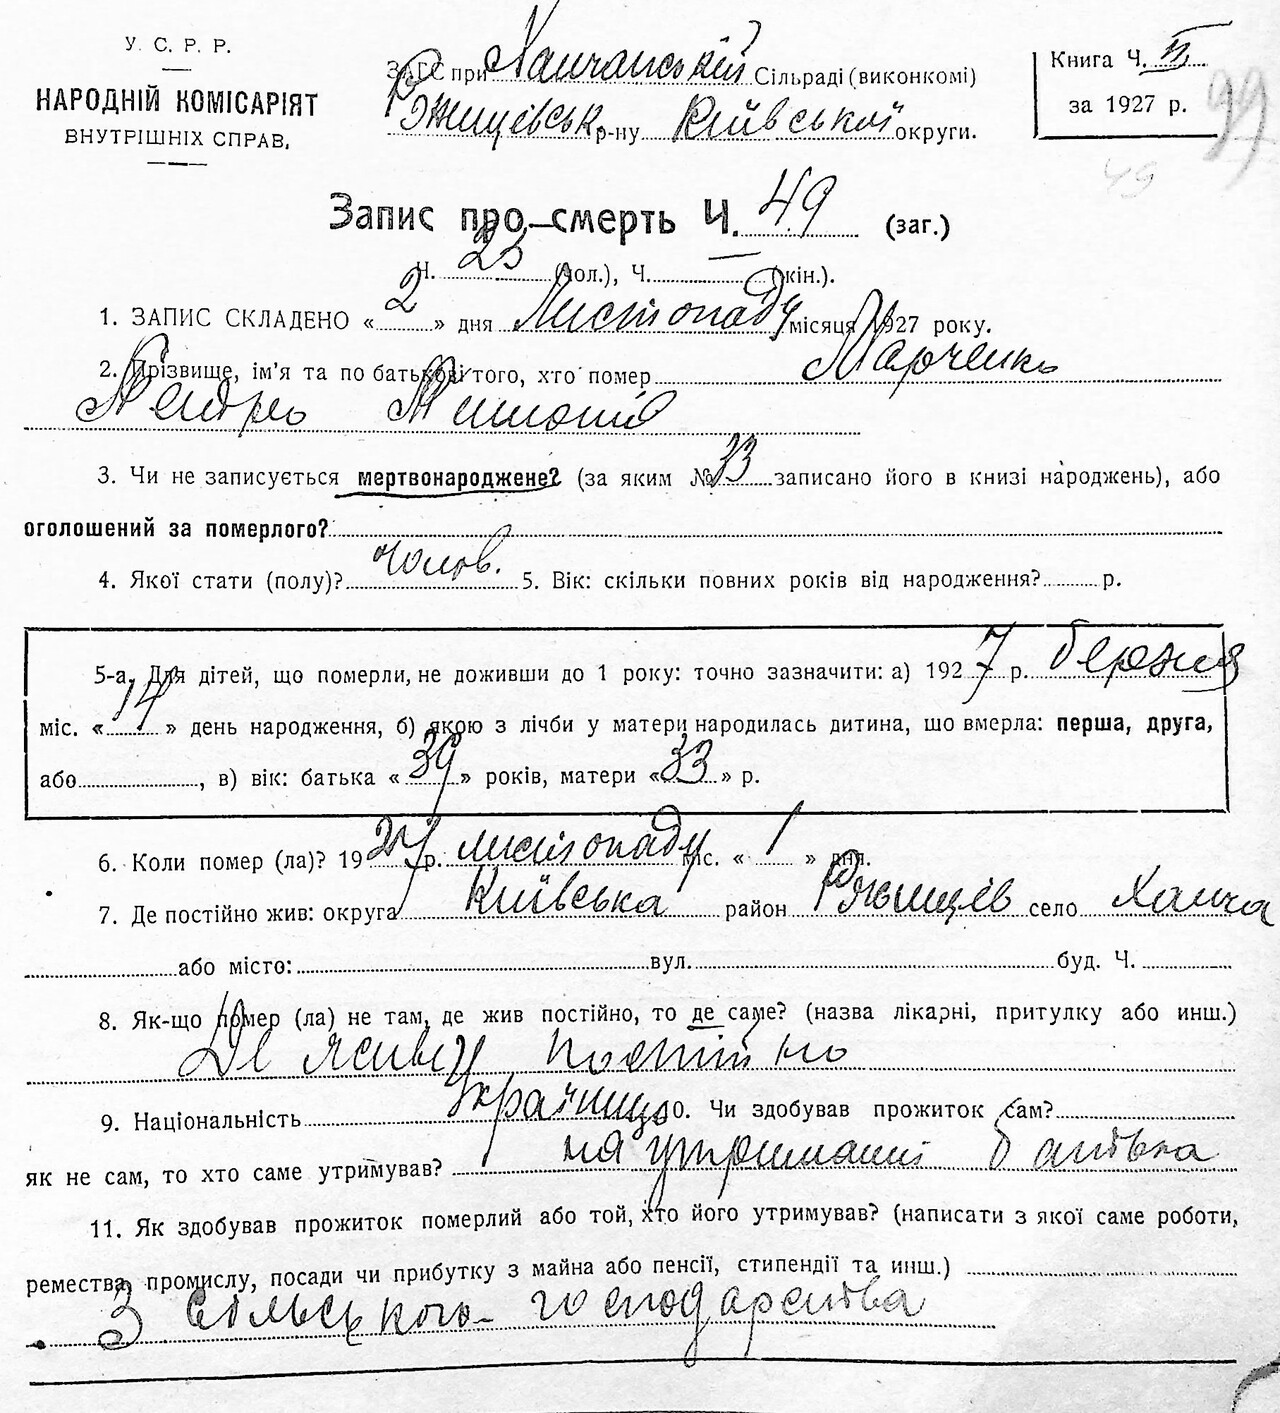 У. С. Р. Р.
НАРОДНІЙ КОМІСАРІЯТ
ВНУТРІШНІХ СПРАВ.
ЗАГС при Ханчанській Сільраді (виконкомі)
Ржищевськ. р-ну Київської округи.
Книга Ч. II
за 1927 р.
99
49
Запис про смерть Ч. 49 (заг.)
Ч. 25 (пол.), Ч. — (жін.).
1. ЗАПИС СКЛАДЕНО « 2 » дня Листопаду місяця 1927 року.
2. Прізвище, ім'я та по батькові того, хто помер Марченко
3. Чи не записується мертвонароджене? (за яким № 33 записано його в книзі народжень), або
оголошений за померлого?
4. Якої стати (полу)? чолов. 5. Вік: скільки повних років від народження? р.
5-а. Для дітей, що померли, не доживши до 1 року: точно зазначити: а) 1927 р. березня
міс. « 14 » день народження, б) якою з лічби у матери народилась дитина, що вмерла: перша, друга,
або , в) вік: батька « 39 » років, матери « 33 » р.
6. Коли помер (ла)? 1927 р. листопаду міс. « 1 » дня.
7. Де постійно жив: округа Київська район Ржищев село Ханча
або місто: вул. буд. Ч.
8. Як-що помер (ла) не там, де жив постійно, то де саме? (назва лікарні, притулку або инш.)
Де живу постійно
9. Національність 10. Чи здобував прожиток сам?
як не сам, то хто саме утримував? на утриманні батька
11. Як здобував прожиток померлий або той, хто його утримував? (написати з якої саме роботи,
ремества, промислу, посади чи прибутку з майна або пенсії, стипендії та инш.)
З сільського господарства